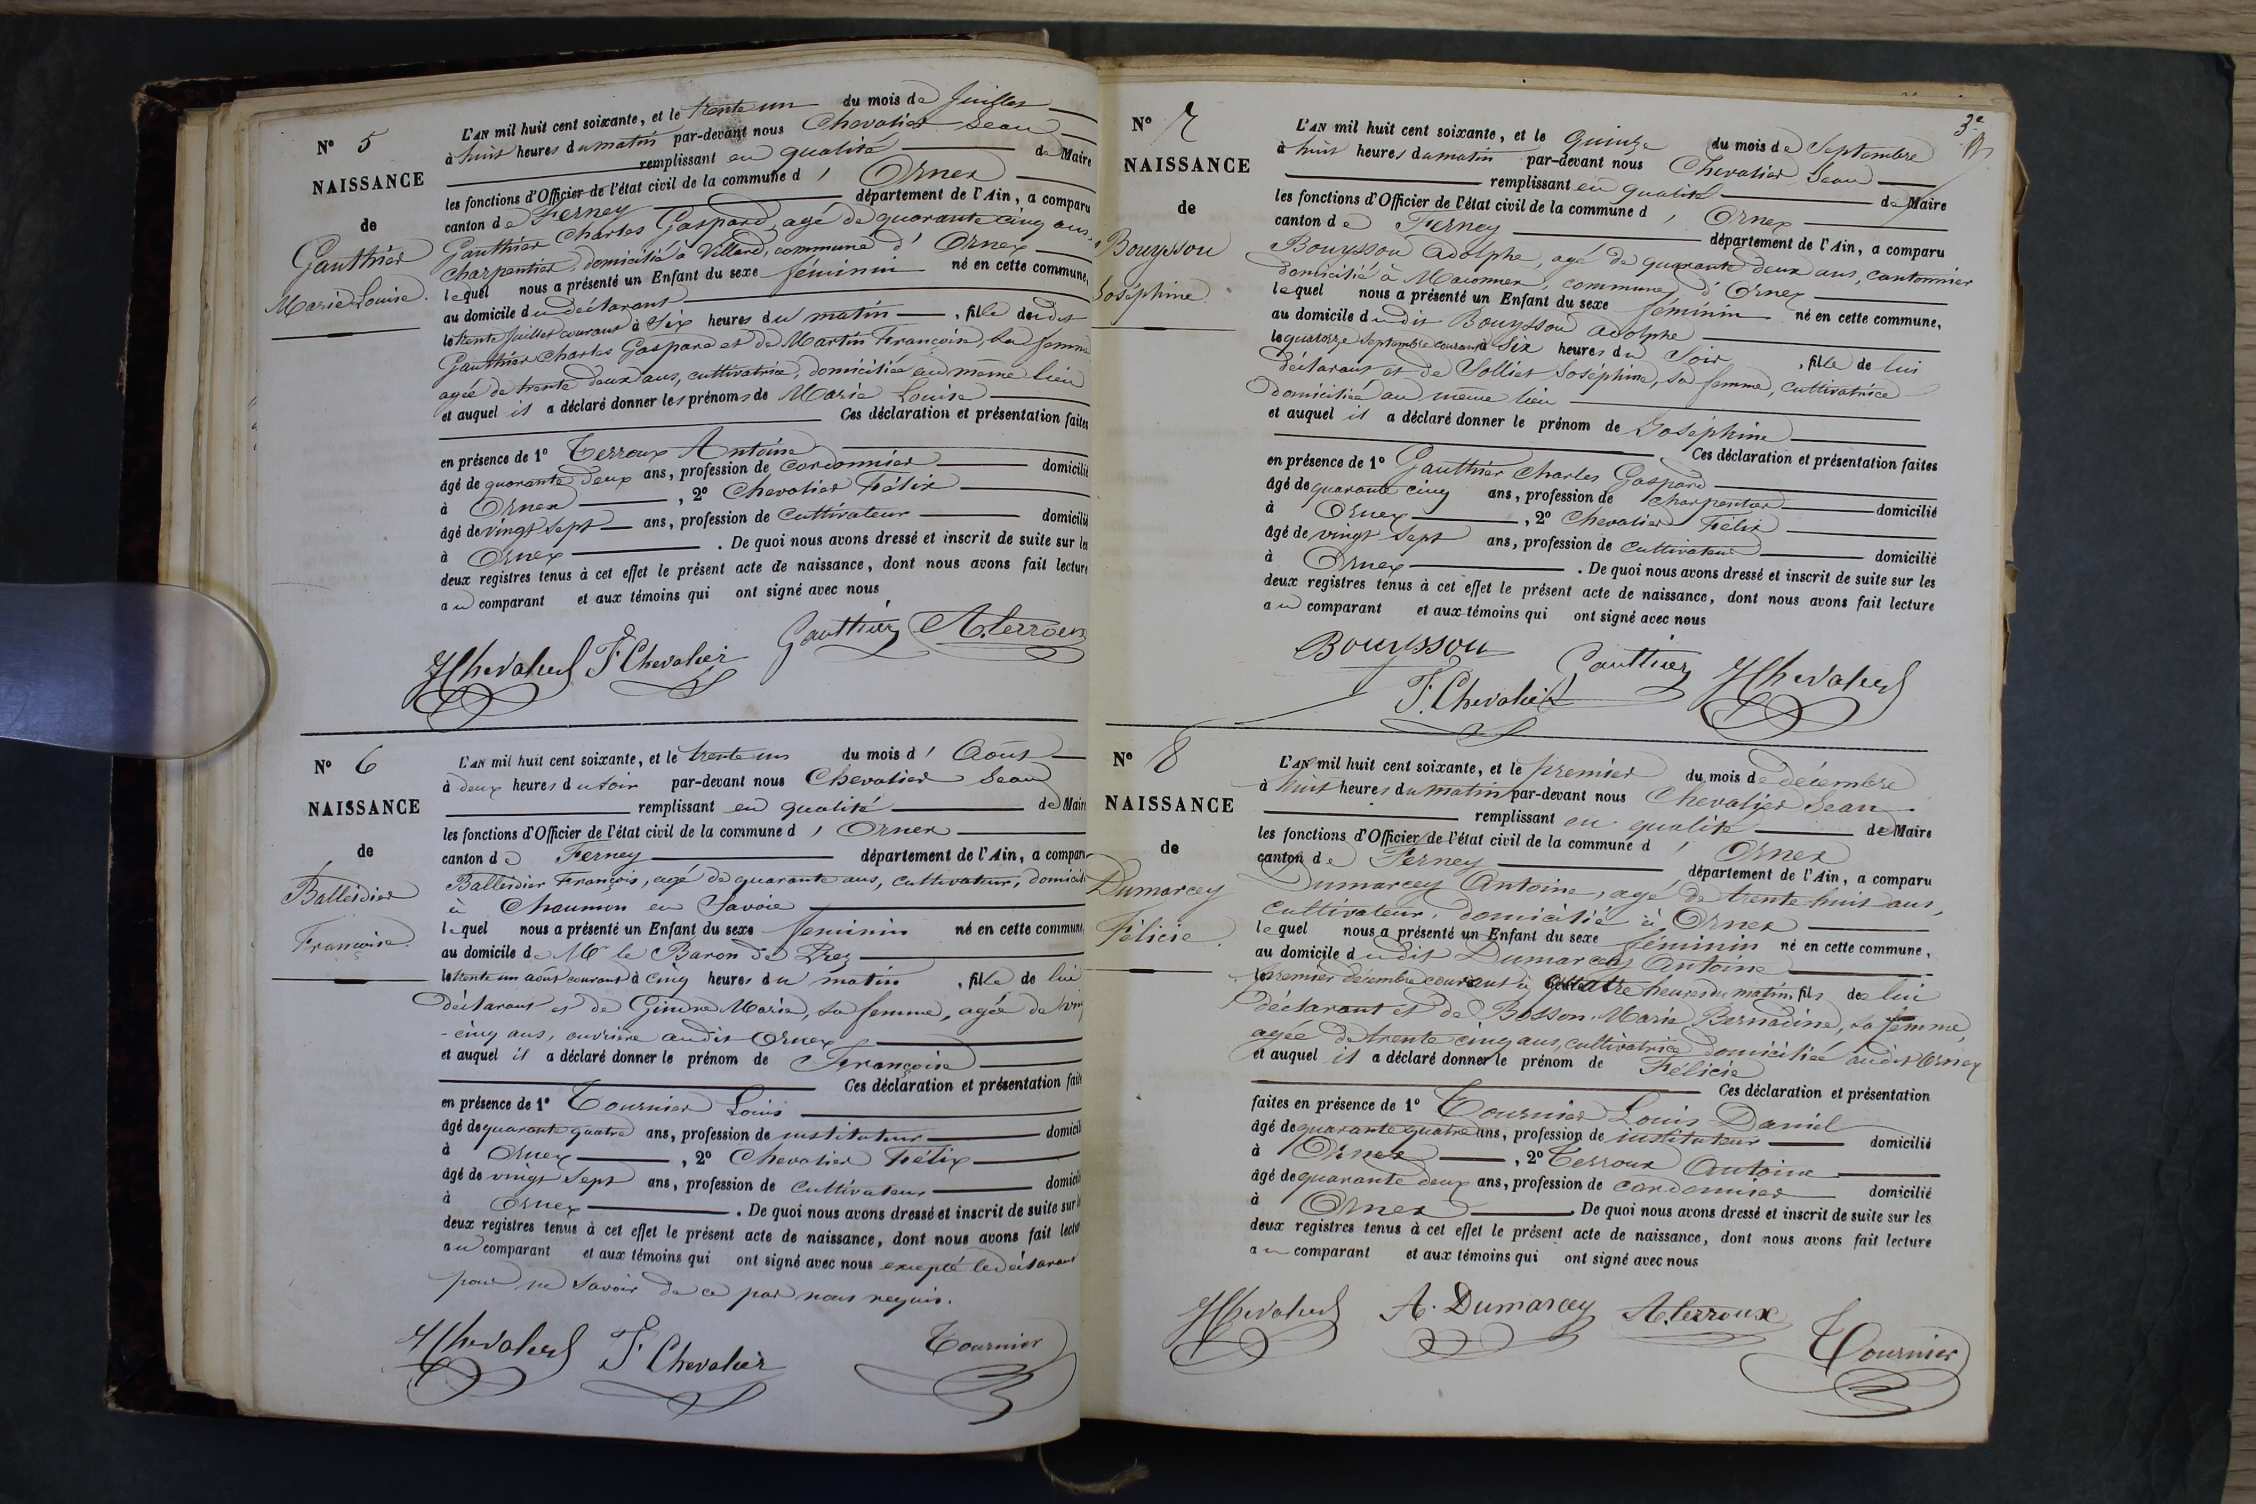 N° 5
NAISSANCE
de
Gauthier
Marie Louise.
L'AN mil huit cent soixante, et le trente un du mois de Juillet
à huit heures du matin par-devant nous Chevalier Jean
remplissant en qualité de Maire
les fonctions d'Officier de l'état civil de la commune d' Ornex
canton de Ferney département de l'Ain, a comparu
Gauthier Charles Gaspard, agé de quarante cinq ans,
charpentier, domicilié à Villard, commune d' Ornex
lequel nous a présenté un Enfant du sexe féminin né en cette commune,
au domicile du déclarant
le trente Juillet courant à Six heures du matin, fille dudit
Gauthier Charles Gaspard et de Martin Françoise, sa femme
agée de trente deux ans, cultivatrice, domiciliée au même lieu
et auquel il a déclaré donner les prénoms de Marie Louise
Ces déclaration et présentation faites
en présence de 1° Terroux Antoine
âgé de quarante deux ans, profession de cordonnier domicilié
à Ornex, 2° Chevalier Félix
âgé de vingt sept ans, profession de cultivateur domicilié
à Ornex. De quoi nous avons dressé et inscrit de suite sur les
deux registres tenus à cet effet le présent acte de naissance, dont nous avons fait lecture
au comparant et aux témoins qui ont signé avec nous
Gauthier A. Terroux
J Chevalier F. Chevalier
N° 6
NAISSANCE
de
Balleidier
Françoise.
L'AN mil huit cent soixante, et le trente un du mois d' Août
à deux heures du soir par-devant nous Chevalier Jean
remplissant en qualité de Maire
les fonctions d'Officier de l'état civil de la commune d' Ornex
canton de Ferney département de l'Ain, a comparu
Balleidier François, agé de quarante ans, cultivateur, domicilié
à Chaumon en Savoie
lequel nous a présenté un Enfant du sexe féminin né en cette commune,
au domicile de Mr le Baron de Prez
le trente un août courant à cinq heures du matin, fille de lui
déclarant et de Gindre Marie, sa femme, agée de ving
-cinq ans, ouvrière audit Ornex
et auquel il a déclaré donner le prénom de Françoise
Ces déclaration et présentation faite
en présence de 1° Tournier Louis
âgé de quarante quatre ans, profession de instituteur domicili
à Ornex, 2° Chevalier Félix
âgé de vingt sept ans, profession de cultivateur domicili
à Ornex. De quoi nous avons dressé et inscrit de suite sur l
deux registres tenus à cet effet le présent acte de naissance, dont nous avons fait lectur
au comparant et aux témoins qui ont signé avec nous excepté le déclarant
pour ne savoir de ce par nous requis.
J Chevalier F. Chevalier Tournier
3e
N° 7
NAISSANCE
de
Bouysson
Joséphine.
L'AN mil huit cent soixante, et le quinze du mois de Septembre
à huit heures du matin par-devant nous Chevalier Jean
remplissant en qualité de Maire
les fonctions d'Officier de l'état civil de la commune d' Ornex
canton de Ferney département de l'Ain, a comparu
Bouysson Adolphe, agé de quarante deux ans, cantonnier
domicilié à Maconnex, commune d' Ornex
lequel nous a présenté un Enfant du sexe féminin né en cette commune,
au domicile dudit Bouysson Adolphe
le quatorze Septembre courant à Six heures du Soir, fille de lui
déclarant et de Solliet Joséphine, sa femme, cultivatrice
domiciliée au même lieu
et auquel il a déclaré donner le prénom de Joséphine
Ces déclaration et présentation faites
en présence de 1° Gauthier Charles Gaspard
âgé de quarante cinq ans, profession de charpentier domicilié
à Ornex, 2° Chevalier Félix
âgé de vingt sept ans, profession de cultivateur domicilié
à Ornex. De quoi nous avons dressé et inscrit de suite sur les
deux registres tenus à cet effet le présent acte de naissance, dont nous avons fait lecture
au comparant et aux témoins qui ont signé avec nous
Bouysson Gauthier J Chevalier
F. Chevalier
N° 8
NAISSANCE
de
Dumarcey
Félicie.
L'AN mil huit cent soixante, et le premier du mois de décembre
à huit heures du matin par-devant nous Chevalier Jean
remplissant en qualité de Maire
les fonctions d'Officier de l'état civil de la commune d' Ornex
canton de Ferney département de l'Ain, a comparu
Dumarcey Antoine, agé de trente huit ans,
cultivateur, domicilié à Ornex
lequel nous a présenté un Enfant du sexe féminin né en cette commune,
au domicile dudit Dumarcey Antoine
le premier décembre courant à quatre heures du matin, fils de lui
déclarant et de Bosson Marie Bernadine, sa femme,
agée de trente cinq ans, cultivatrice domiciliée audit Ornex
et auquel il a déclaré donner le prénom de Félicie
Ces déclaration et présentation
faites en présence de 1° Tournier Louis Daniel
âgé de quarante quatre ans, profession de instituteur domicilié
à Ornex, 2° Terroux Antoine
âgé de quarante deux ans, profession de cordonnier domicilié
à Ornex. De quoi nous avons dressé et inscrit de suite sur les
deux registres tenus à cet effet le présent acte de naissance, dont nous avons fait lecture
au comparant et aux témoins qui ont signé avec nous
J Chevalier A. Dumarcey A. Terroux
Tournier